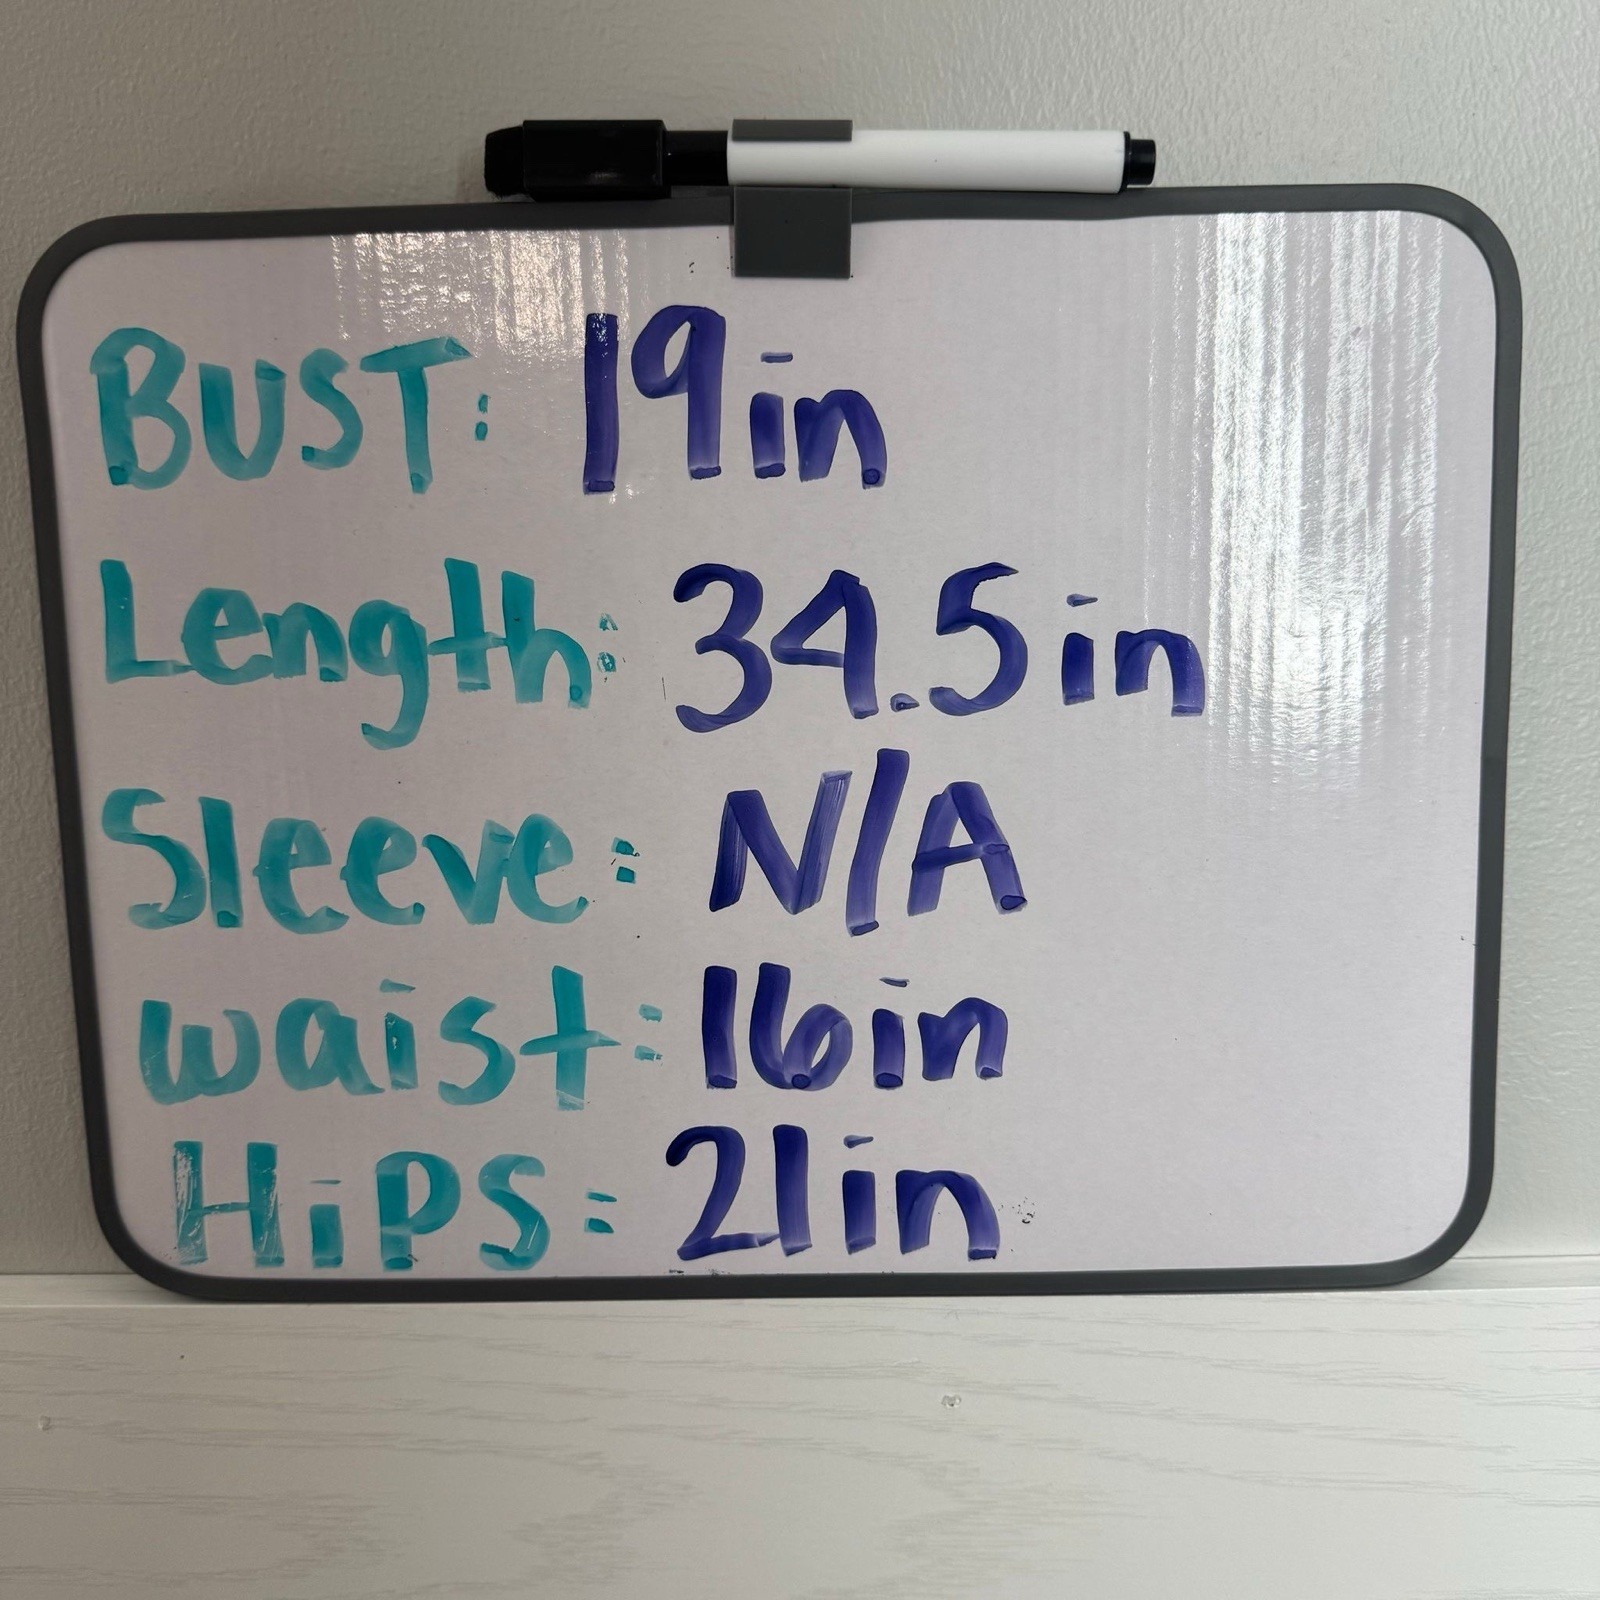 BUST: 19in
Length: 34.5in
Sleeve: N/A
waist: 16in
HiPS: 21in